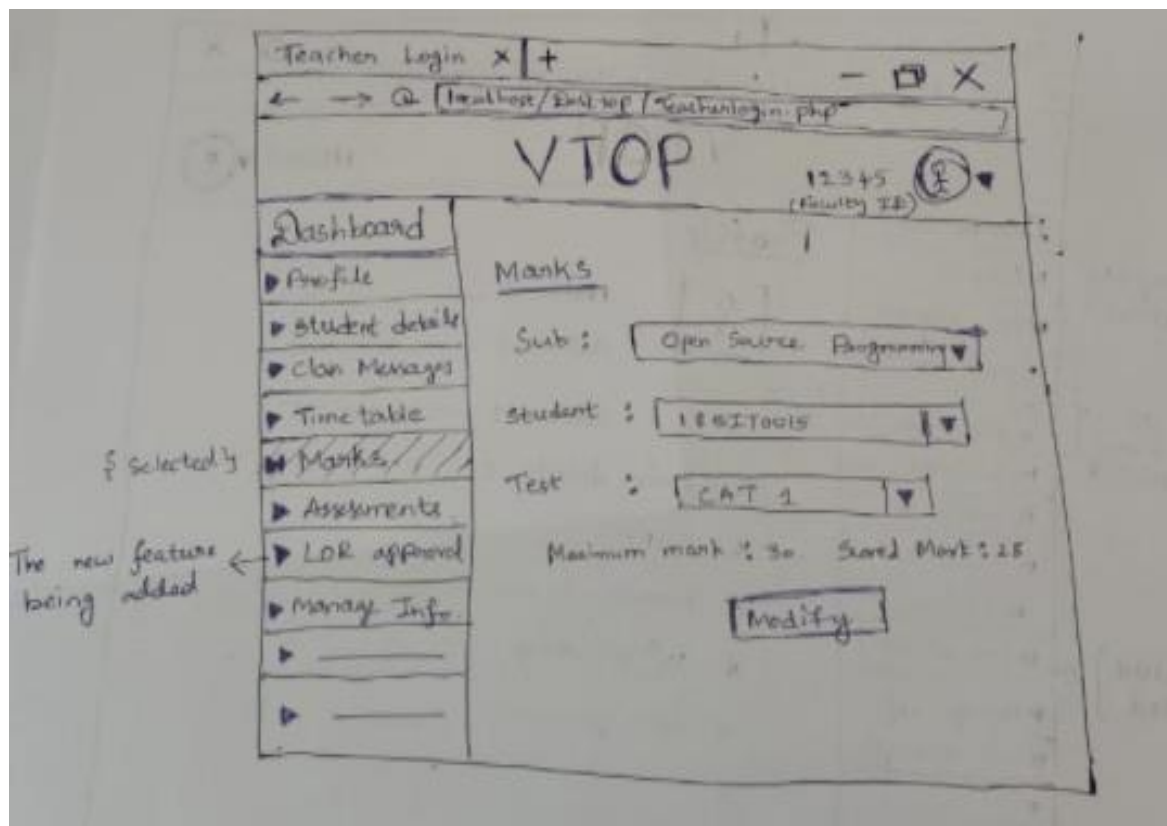 Teacher Login × +
− ×
← →
localhost/Desktop/Teacherlogin.php
VTOP
12345
(Faculty ID)
Dashboard
Profile
Student details
Class Messages
Time table
{selected}
Marks
Assessments
The new feature being added
LOR approval
Manage Info.
Marks
Sub : Open Source Programming
Student :
Test : CAT 1
Maximum mark : 30 Scored Mark : 28
Modify